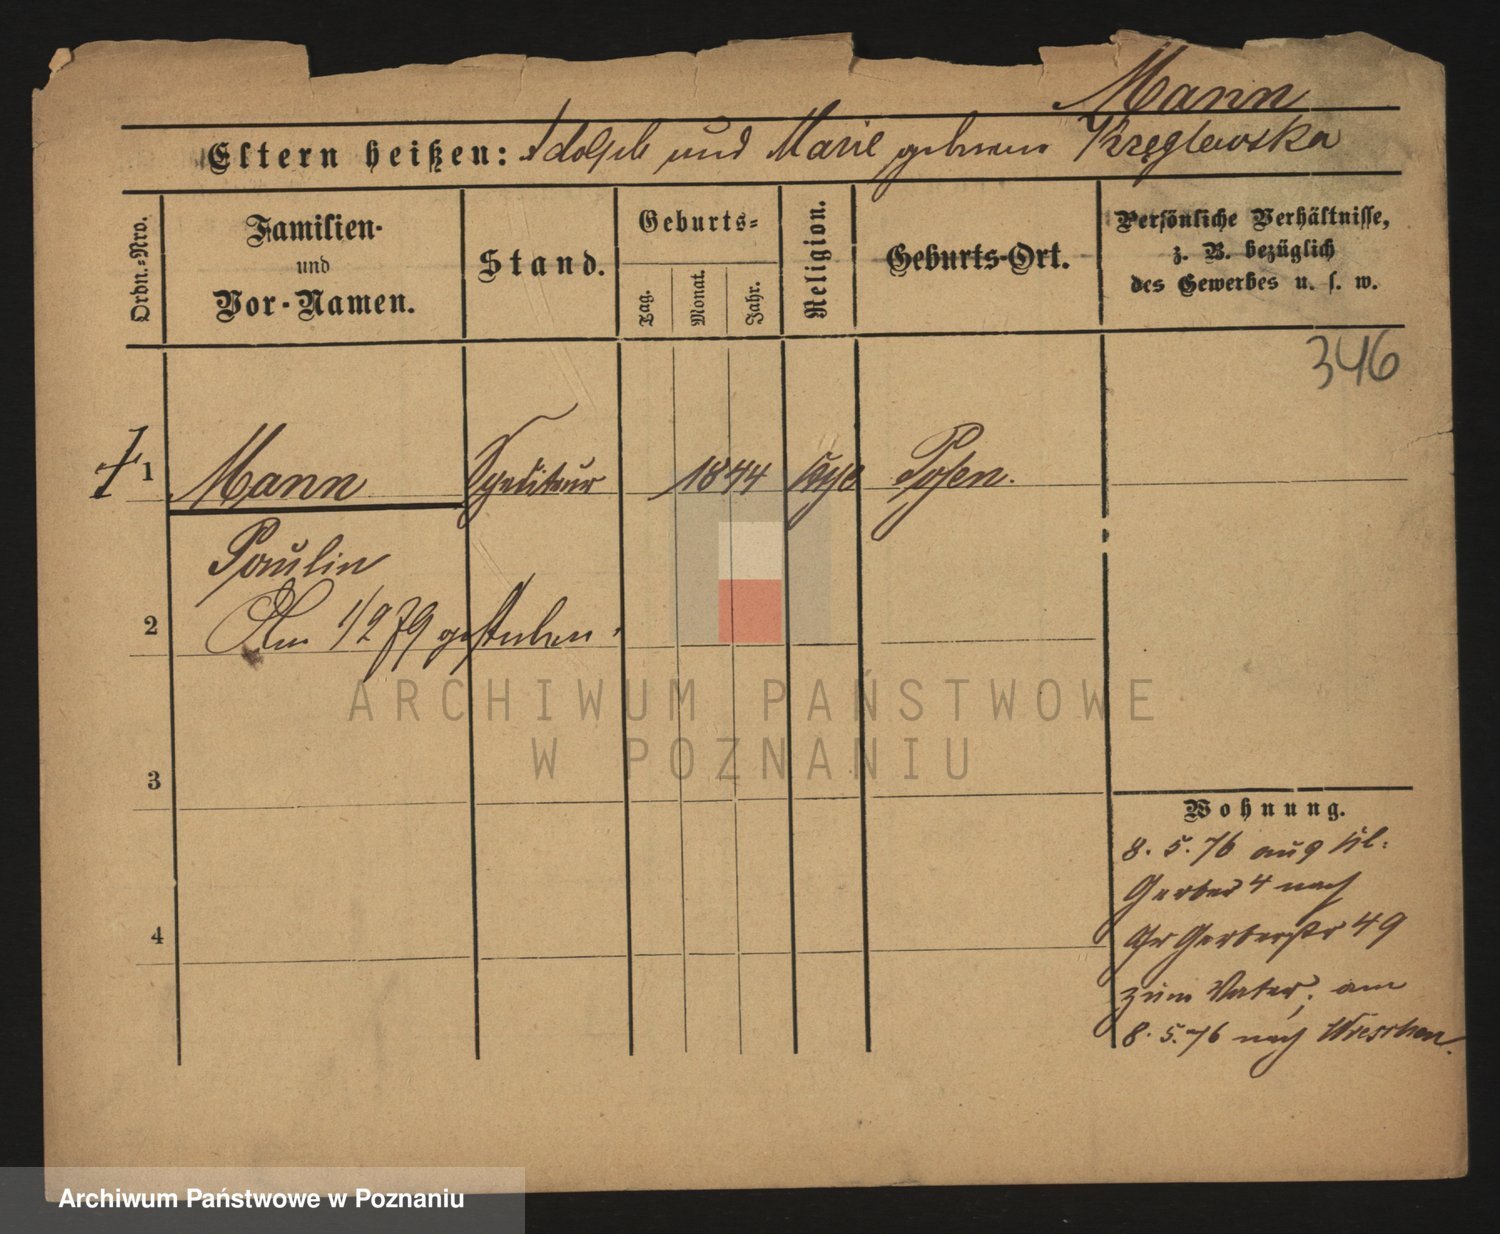 Mann
Eltern heißen: Adolph und Marie geborene Kręglewska
Ordn.-Nro.
Familien-
und
Vor-Namen.
Stand.
Geburts-
Tag.
Monat.
Jahr.
Religion.
Geburts-Ort.
Persönliche Verhältnisse,
z. B. bezüglich
des Gewerbes u. s. w.
346
1 Mann Spediteur 1844 Posen.
Paulin
2 Am 1/2 79 gestorben.
3
4
Wohnung.
8. 5. 76 aus Kl.
Gerber 4 nach
Gr Gerberstr 49
zum Vater, am
8. 5. 76 nach Wreschen.
ARCHIWUM PAŃSTWOWE
W POZNANIU
Archiwum Państwowe w Poznaniu